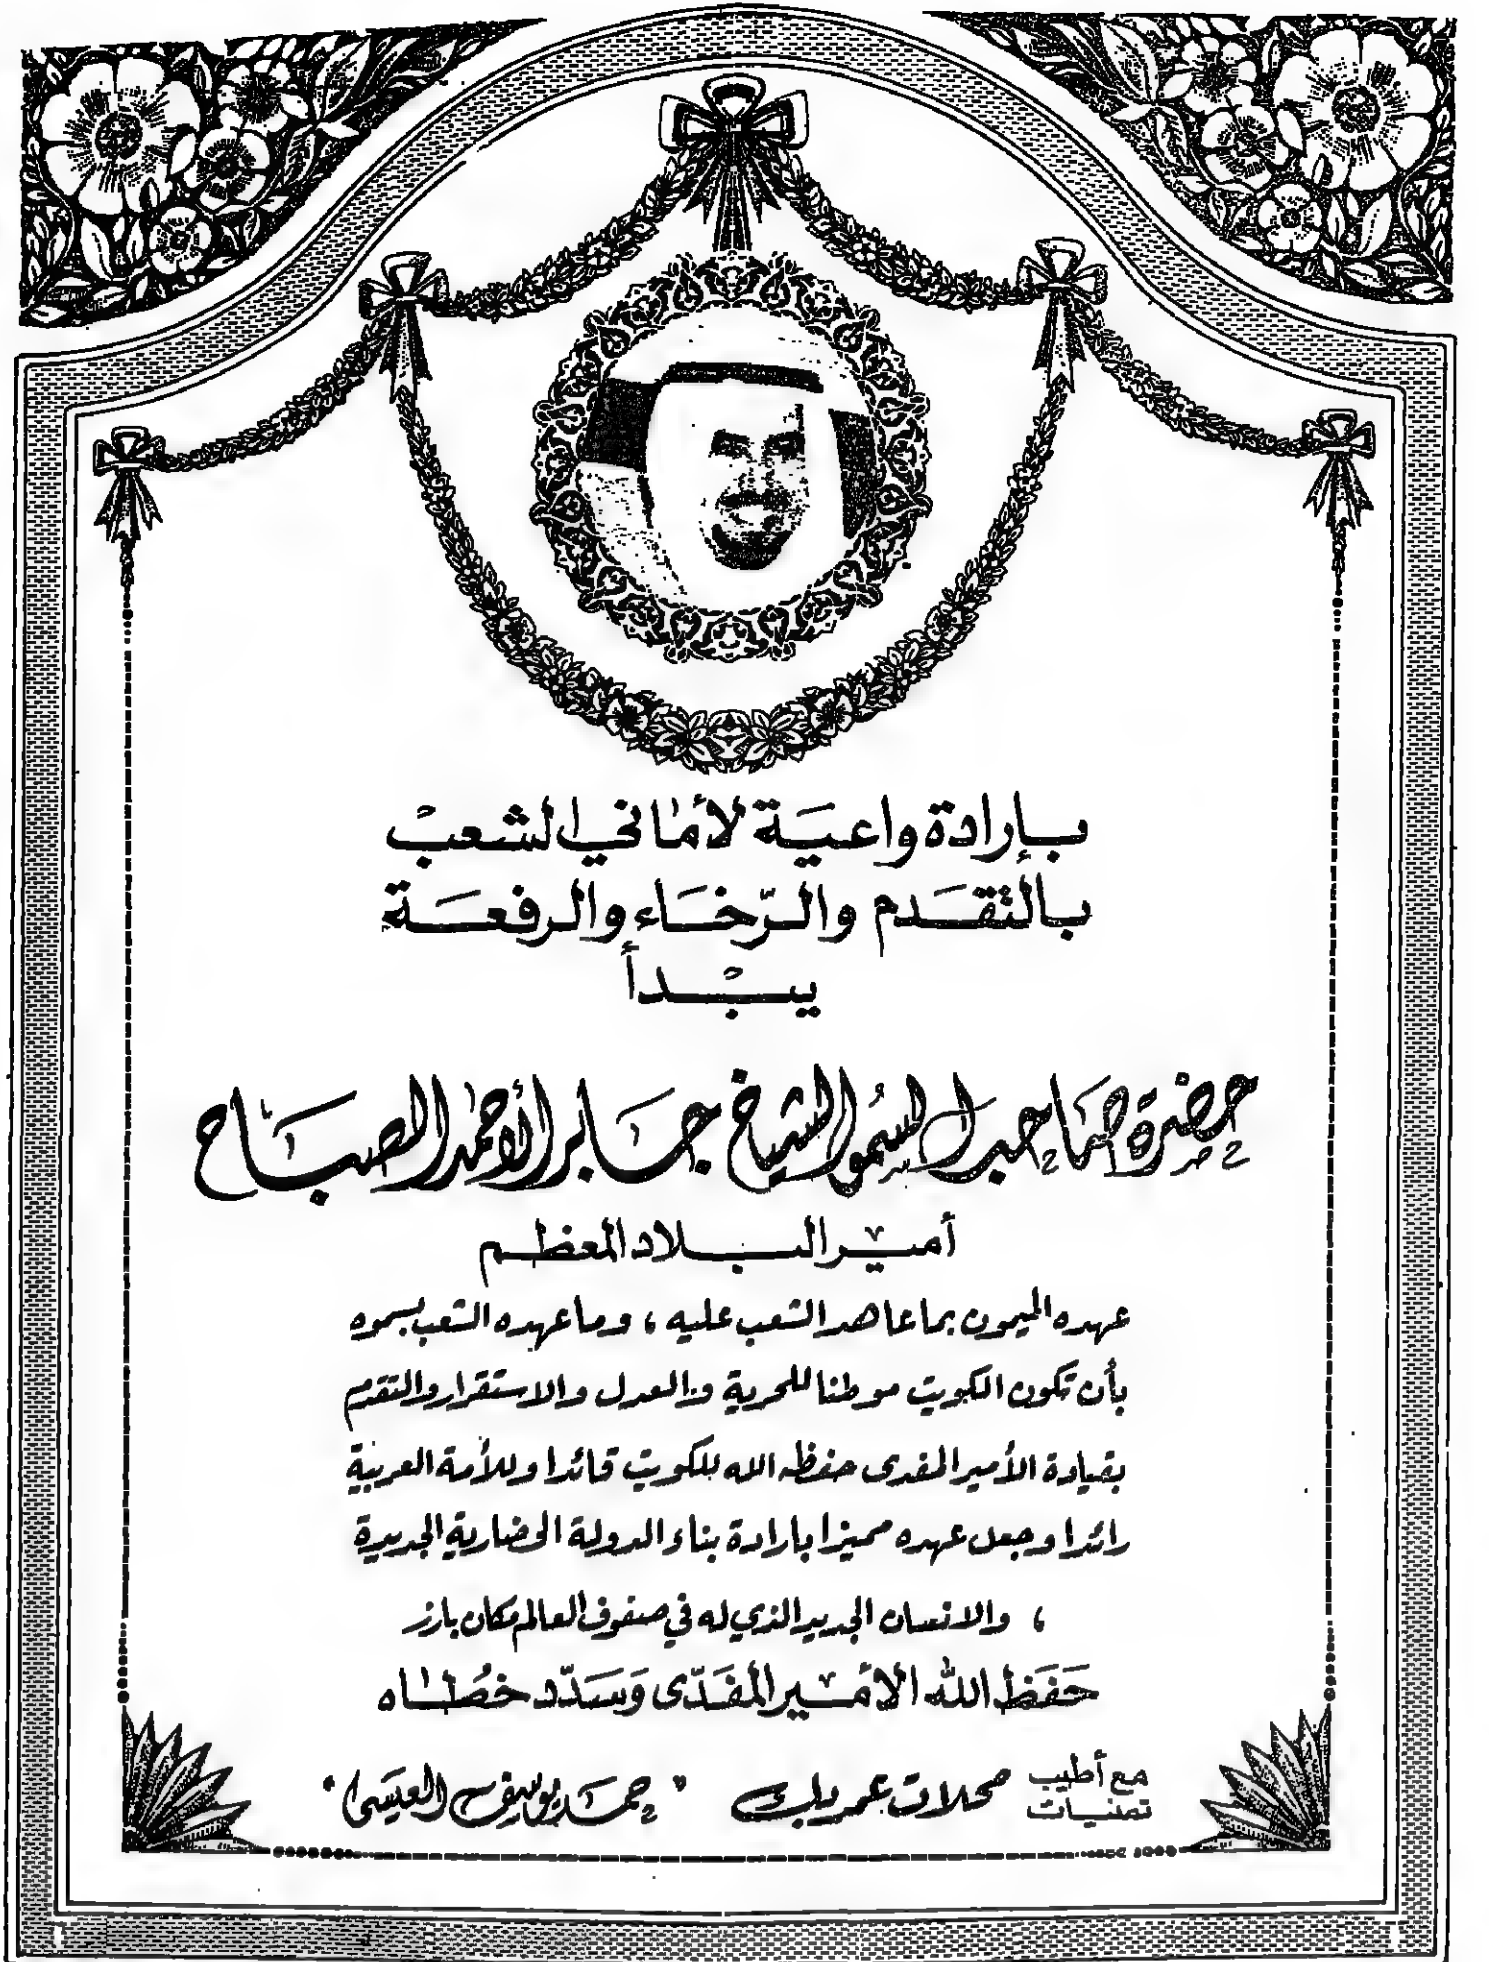 بإرادة واعية لأماني الشعب
بالتقدم والرّخاء والرفعة
يبدأ
حضرة صاحب السمو الشيخ جابر الأحمد الصباح
أمير البلاد المعظم
عهده الميمون بما عاهد الشعب عليه ، وما عهده الشعب بسموه
بأن تكون الكويت موطنا للحرية والعدل والاستقرار والتقدم
بقيادة الأمير المفدى حفظه الله للكويت قائدا وللأمة العربية
رائدا وجعل عهده مميزا بارادة بناء الدولة الحضارية الجديدة
، والانسان الجديد الذي له في صفوف العالم مكان بارز
حَفَظ الله الأمير المفَدّى وَسَدّد خطُاه
مع أطيب تمنيات محلات عمر بلك " حمد يوسف العيسى "